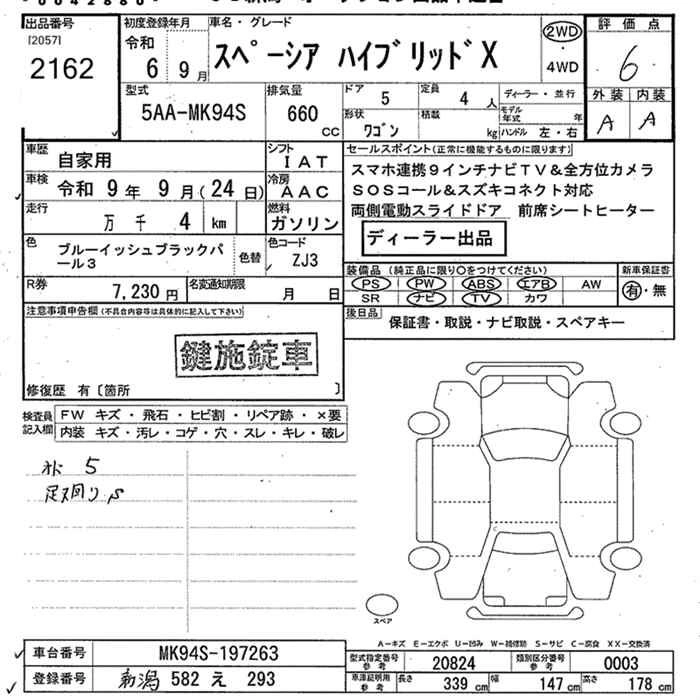 出品番号
[2057]
2162
初度登録年月
令和
6 9月
車名・グレード
スペーシア ハイブリッドX
2WD
・
4WD
評価点
6
外装 内装
A A
型式
5AA-MK94S
排気量
660
CC
ドア
5
定員
4 人
形状
ワゴン
積載
kg
ディーラー・並行
モデル年式 年
ハンドル 左・右
車歴
自家用
シフト
IAT
車検
令和 9年 9月(24日)
冷房
AAC
走行
万 千 4 km
燃料
ガソリン
色
ブルーイッシュブラックパール3
色替
色コード
ZJ3
R券
7,230円
名変通知期限
月 日
セールスポイント(正常に機能するものに限ります)
スマホ連携9インチナビTV&全方位カメラ
SOSコール&スズキコネクト対応
両側電動スライドドア 前席シートヒーター
ディーラー出品
装備品(純正品に限り○をつけてください)
PS PW ABS エアB AW
SR ナビ TV カワ
新車保証書
有・無
後日品
保証書・取説・ナビ取説・スペアキー
注意事項申告欄(不具合内容等は具体的に記入して下さい)
鍵施錠車
修復歴 有〔箇所 〕
検査員記入欄
FW キズ・飛石・ヒビ割・リペア跡・×要
内装 キズ・汚レ・コゲ・穴・スレ・キレ・破レ
5
足廻り
スペア
A−キズ E−エクボ U−凹み W−補修跡 S−サビ C−腐食 XX−交換済
車台番号
MK94S-197263
登録番号
新潟 582 え 293
型式指定番号
参考
20824
類別区分番号
参考
0003
車庫証明用
参考
長さ
339 cm
幅
147 cm
高さ
178 cm